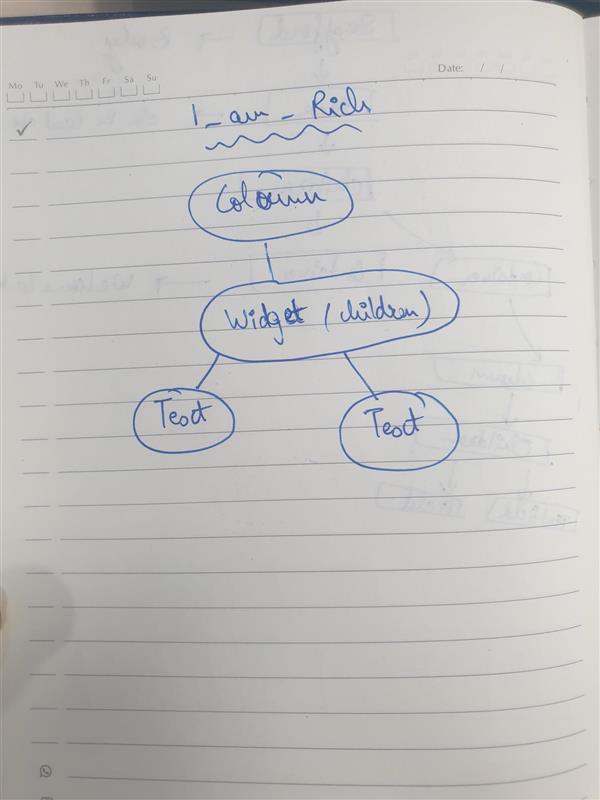 Mo Tu We Th Fr Sa Su
Date: / /
I_am_Rich
Column
Widget (children)
Text Text